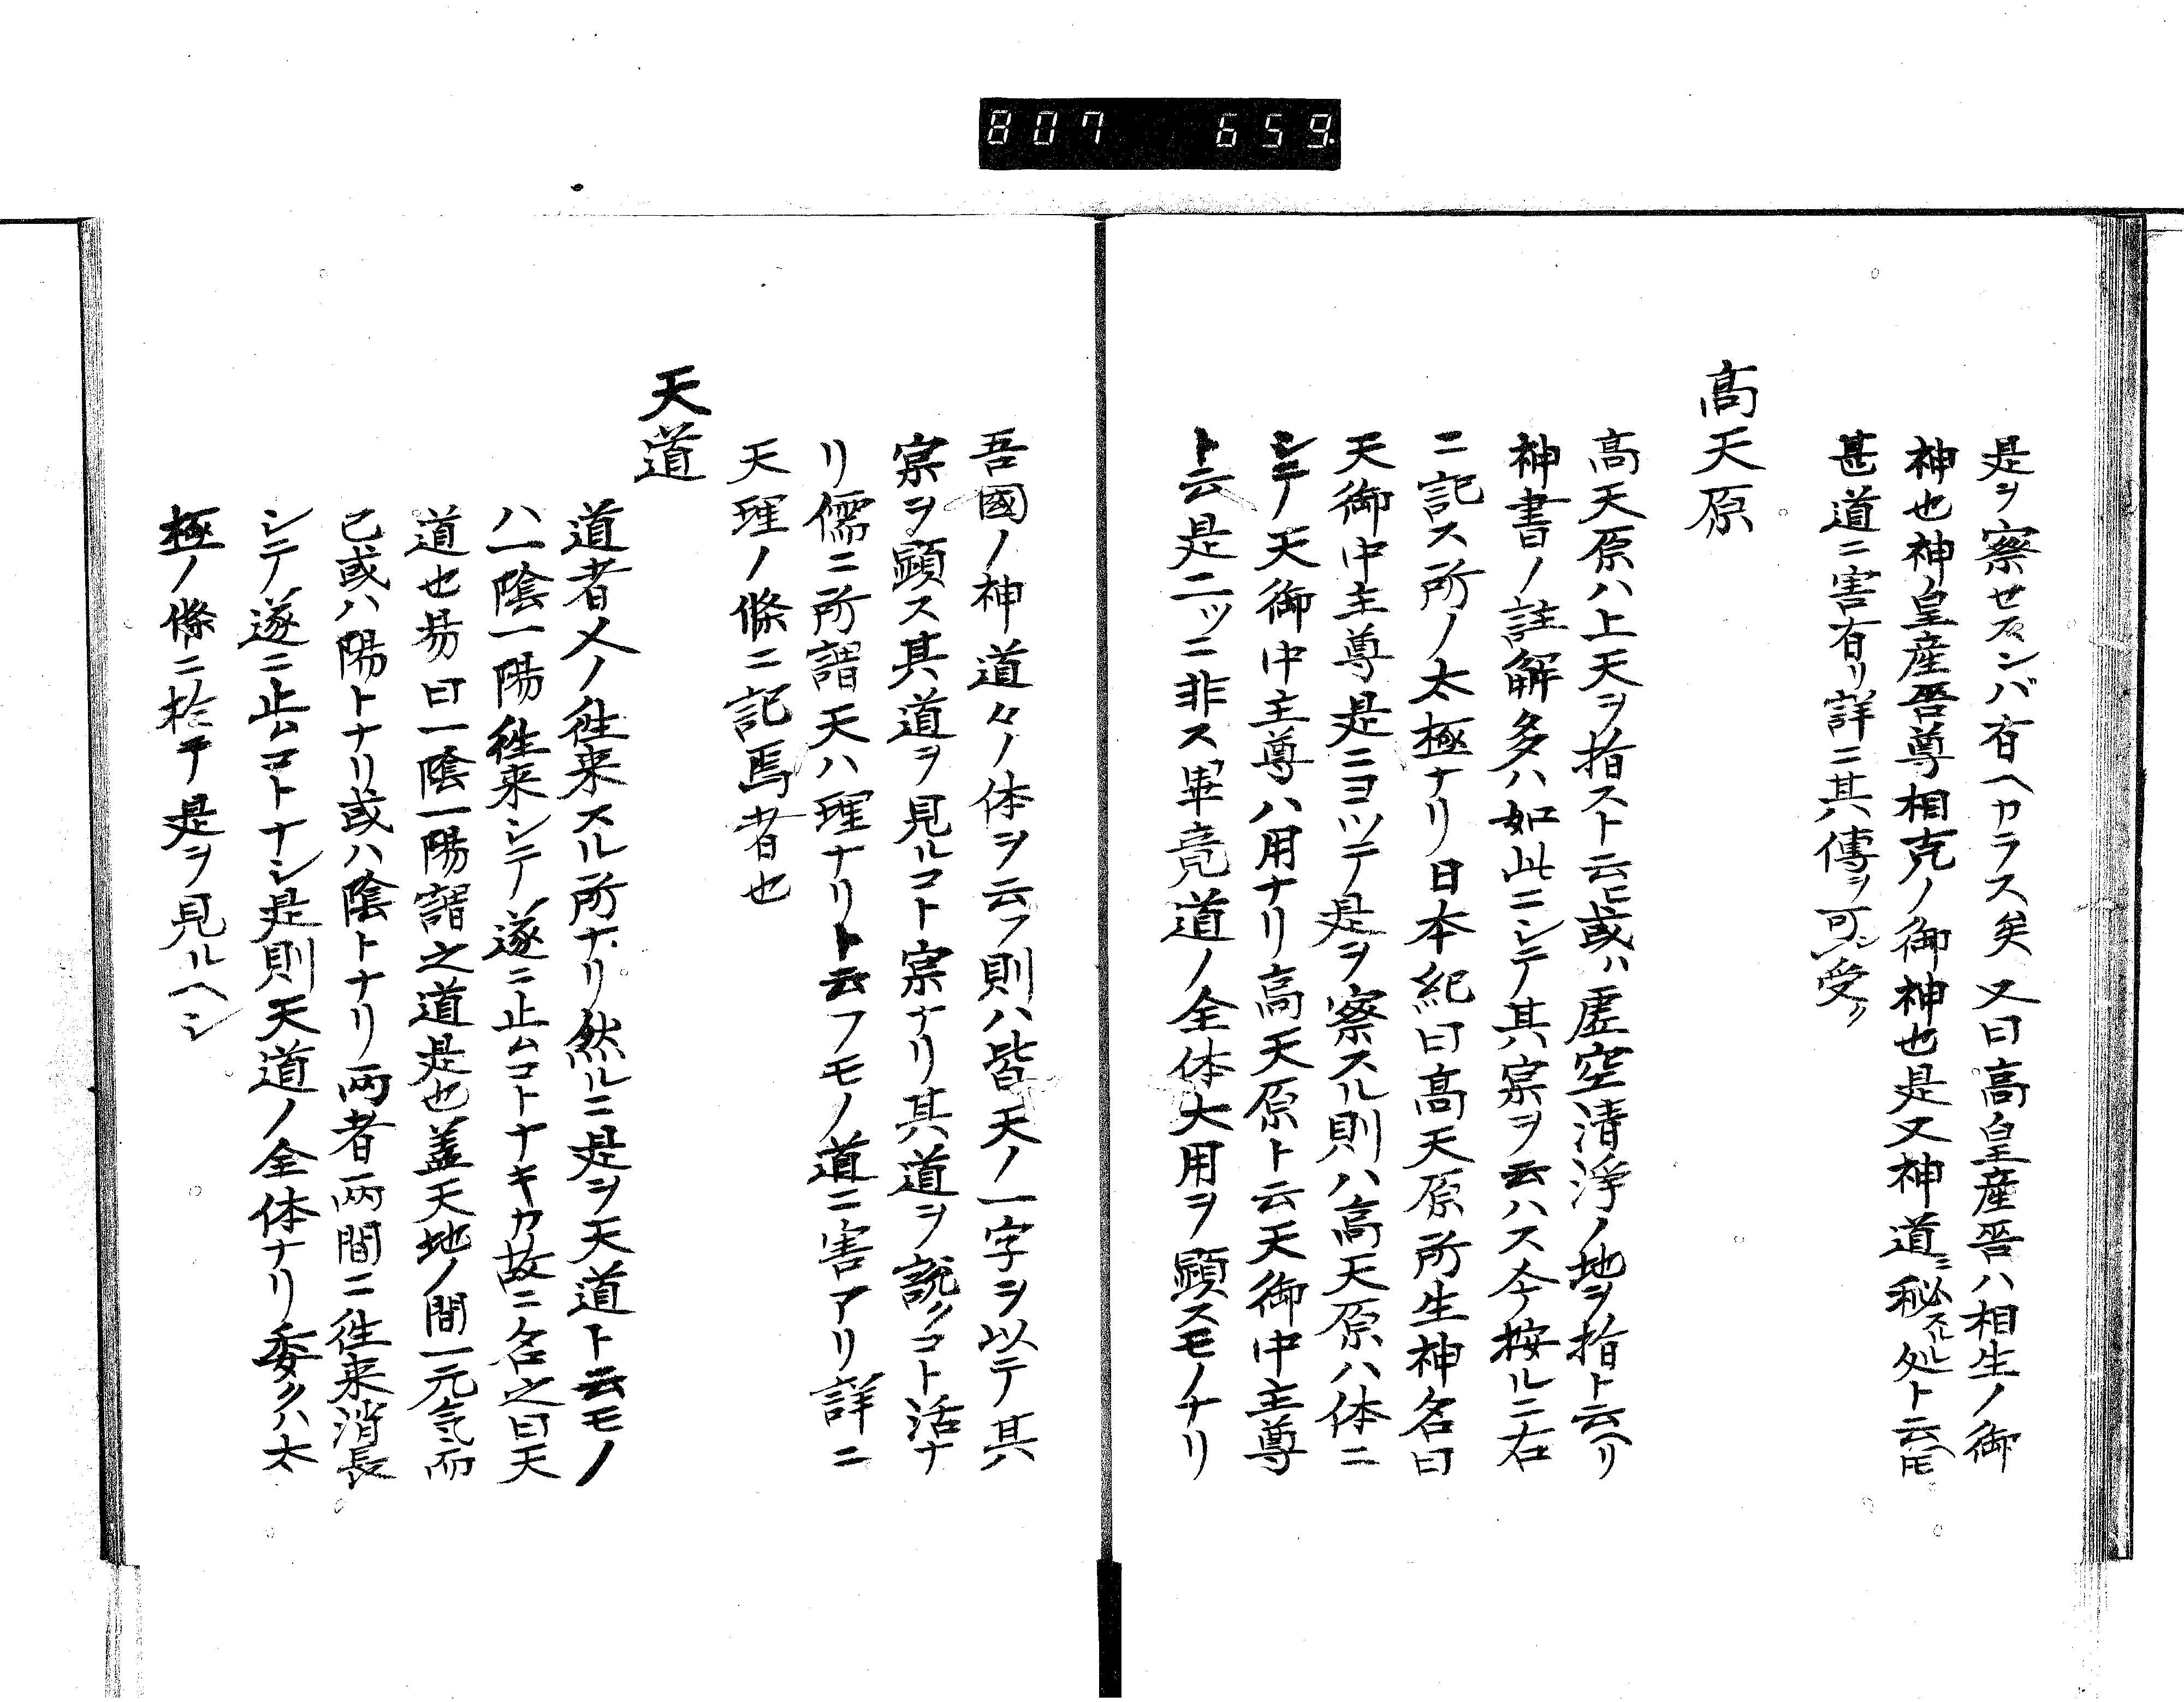 807 659.
是ヲ察セスンバ有ヘカラス矣又曰高皇産㚑ハ相生ノ御
神也神皇産㚑尊相克ノ御神也是又神道ニ秘スル処ト云𪜈
甚道ニ害有リ詳ニ其傳ヲ可受ク
高天原
高天原ハ上天ヲ指スト云ヒ或ハ虚空清浄ノ地ヲ指ト云ヘリ
神書ノ註解多ハ如此ニシテ其実ヲ云ハス今按ルニ右
ニ記ス所ノ太極ナリ日本紀曰高天原所生神名曰
天御中主尊是ニヨツテ是ヲ察スル則ハ高天原ハ体ニ
シテ天御中主尊ハ用ナリ高天原ト云天御中主尊
ト云是二ツニ非ス畢竟道ノ全体大用ヲ顕スモノナリ
吾國ノ神道々ノ体ヲ云フ則ハ皆天ノ一字ヲ以テ其
実ヲ顕ス其道ヲ見ルコト実ナリ其道ヲ説クコト活ナ
リ儒ニ所謂天ハ理ナリト云フモノ道ニ害アリ詳ニ
天理ノ條ニ記焉者也
天道
道者人ノ徃来スル所ナリ然ルニ是ヲ天道ト云モノ
ハ一陰一陽徃来シテ遂ニ止ムコトナキカ故ニ名之曰天
道也易曰一陰一陽謂之道是也蓋天地ノ間一元気而
已或ハ陽トナリ或ハ陰トナリ両者両間ニ徃来消長
シテ遂ニ止ムコトナシ是則天道ノ全体ナリ委クハ太
極ノ條ニ於テ是ヲ見ルヘシ